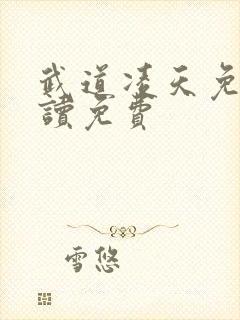 武道凌天免
讀免費
雪悠